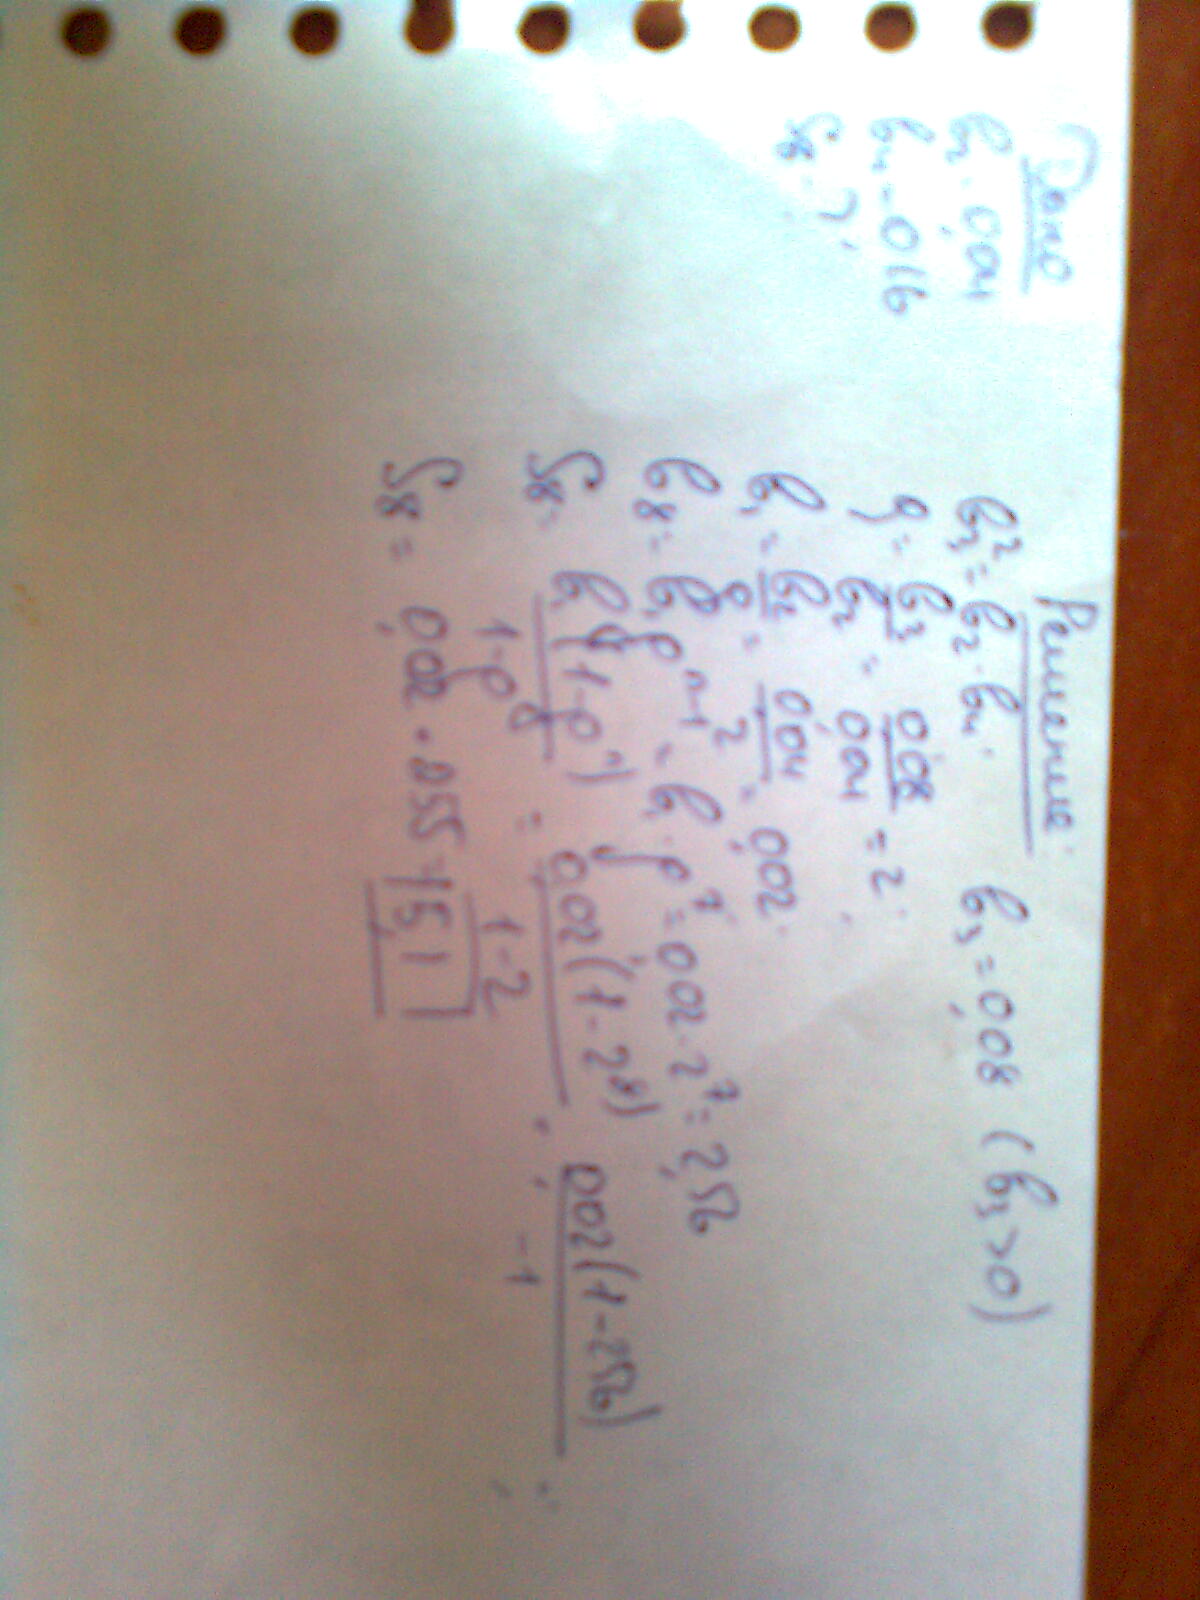 Дано
b₂ = 0,04
b₄ = 0,16
S₈ - ?
Решение:
b₃² = b₂ · b₄; b₃ = 0,08 (b₃ > 0)
q = b₃/b₂ = 0,08/0,04 = 2;
b₁ = b₂/q = 0,04/2 = 0,02;
b₈ = b₁qⁿ⁻¹ = b₁ · q⁷ = 0,02 · 2⁷ = 2,56
S₈ = b₁(1-qⁿ)/1-q = 0,02(1-2⁸)/1-2 = 0,02(1-256)/-1 =
S₈ = 0,02 · 255 = 15,1